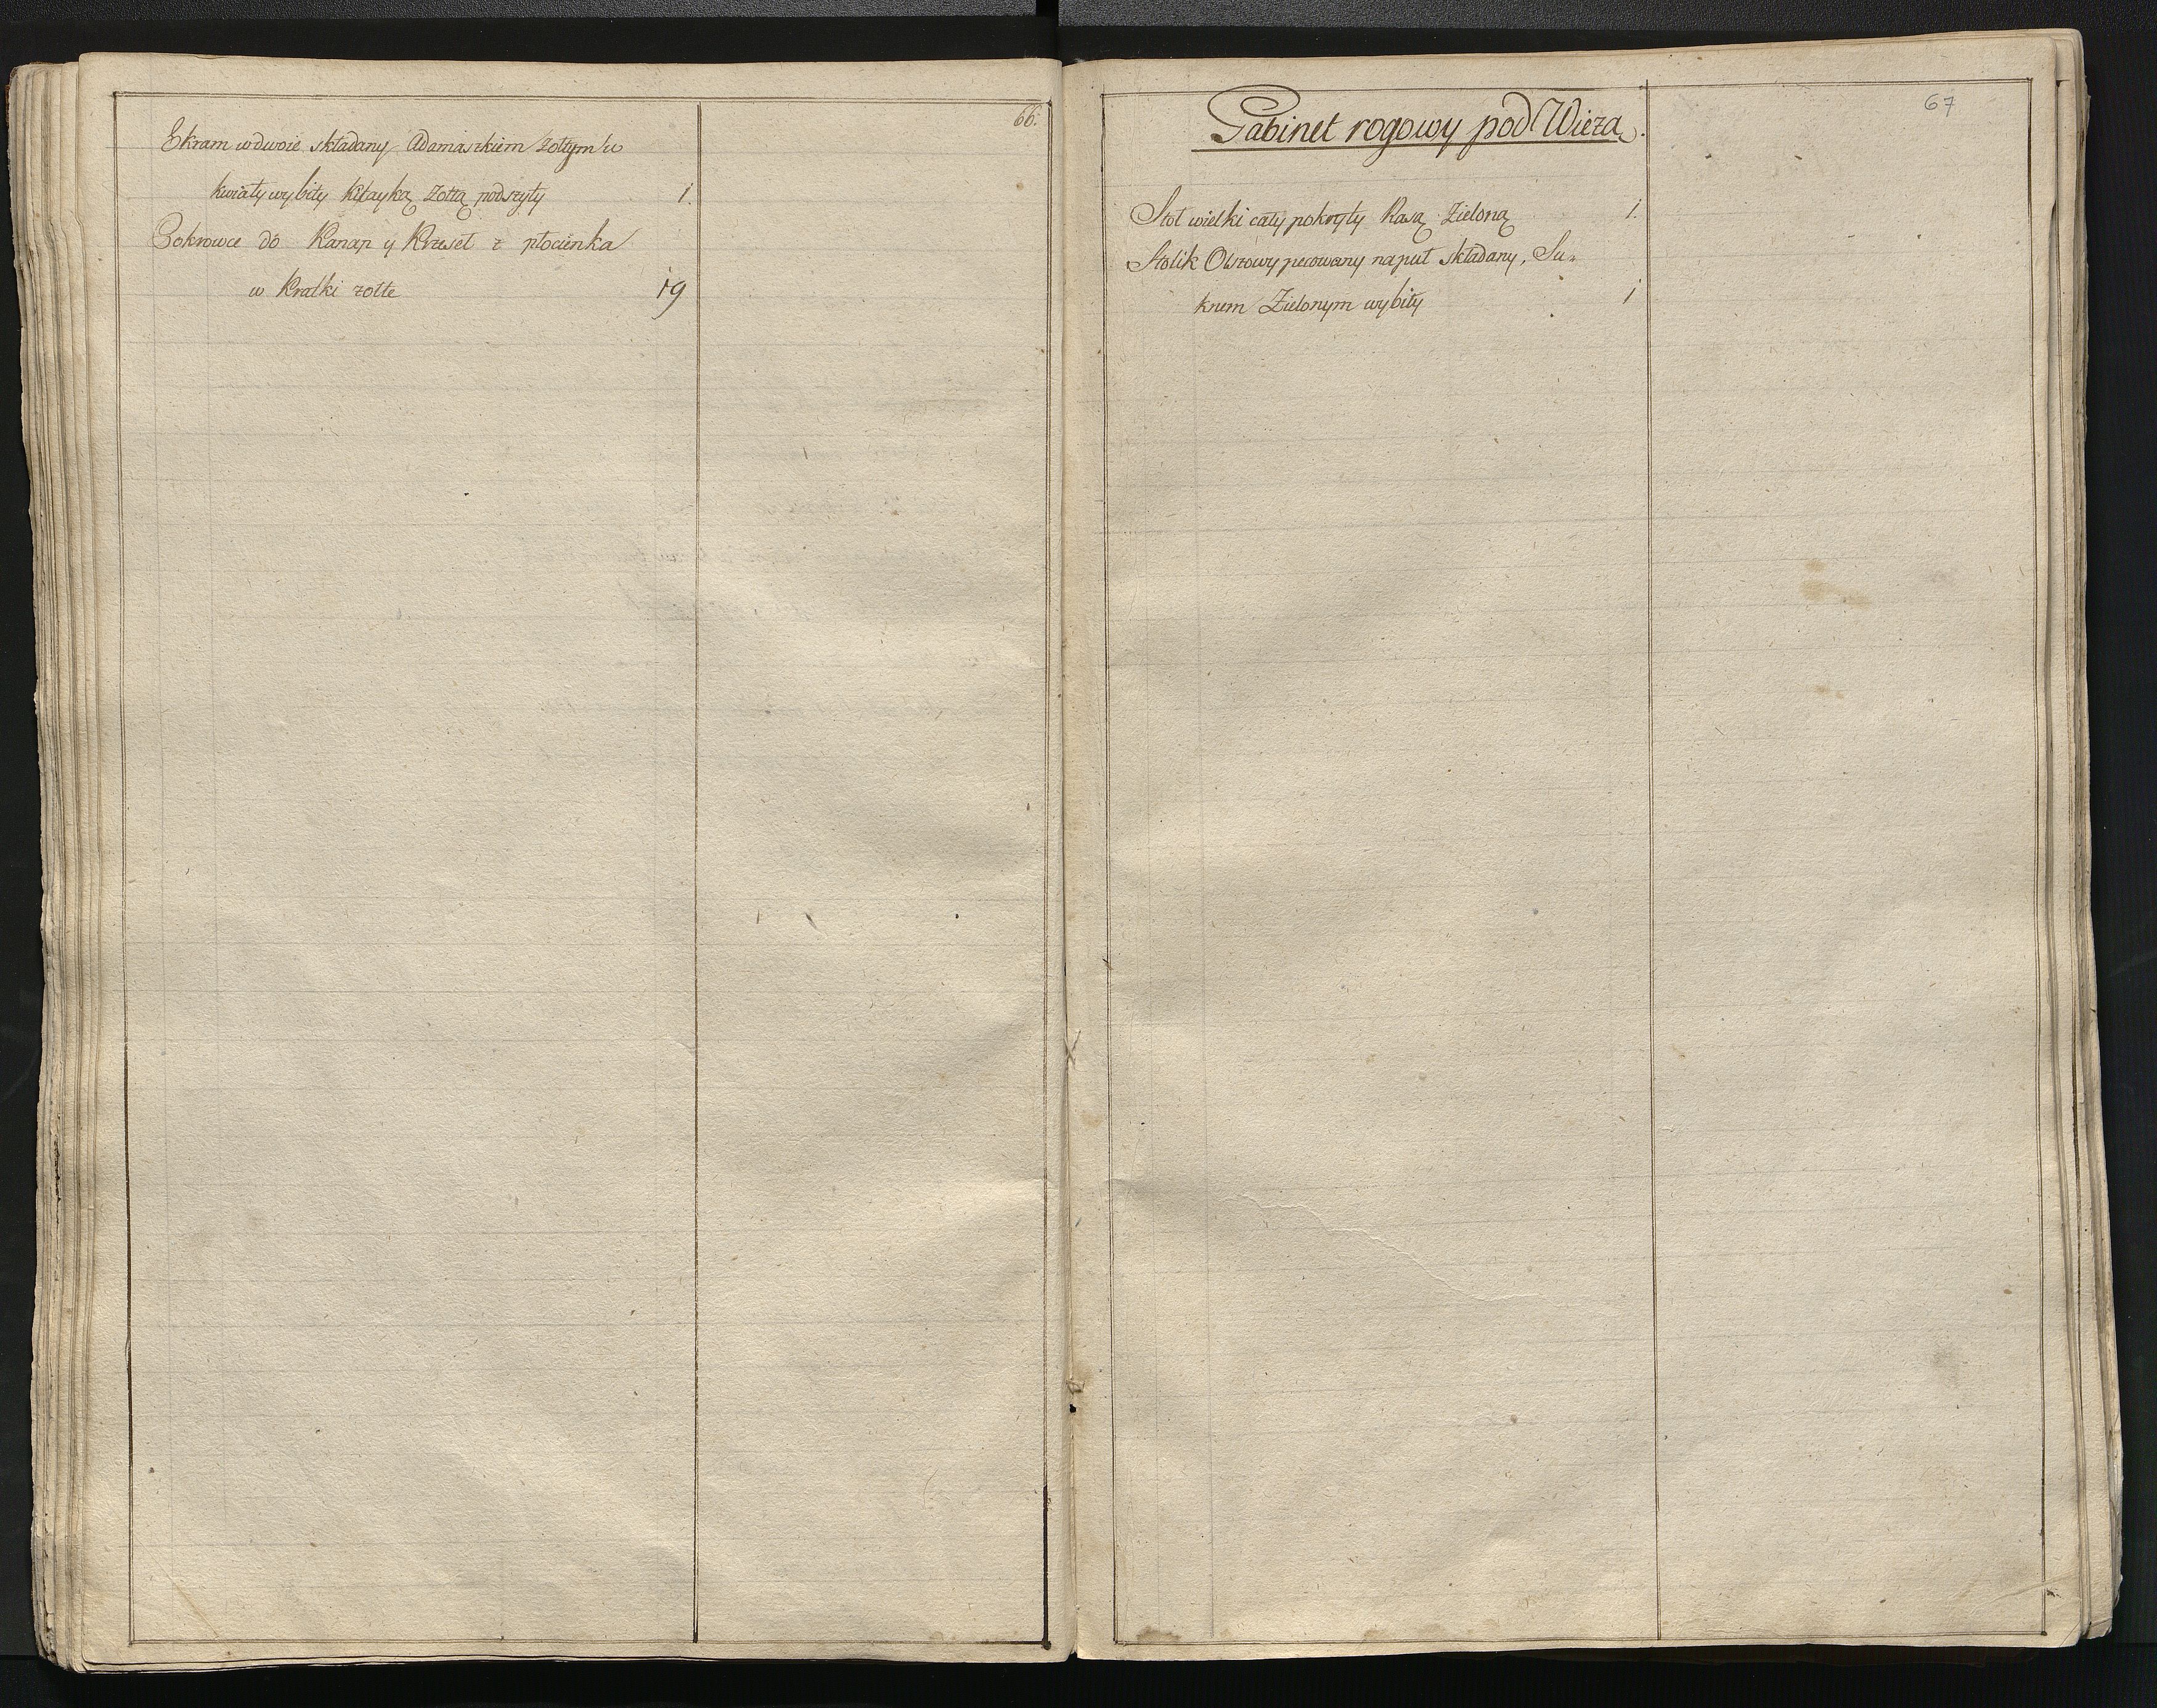 66.
Ekram wdwoie składany Adamaszkiem żołtym w
kwiaty wybity Kitayką żołtą podszyty 1.
Pokrowce do Kanap y Krzeseł z płocienka
w Kratki żołte 19
67
Gabinet rogowy pod Wieżą.
Stoł wielki cały pokryty Rasą Zieloną 1.
Stolik Olszowy pecowany na puł składany, Su=
knem Zielonym wybity 1